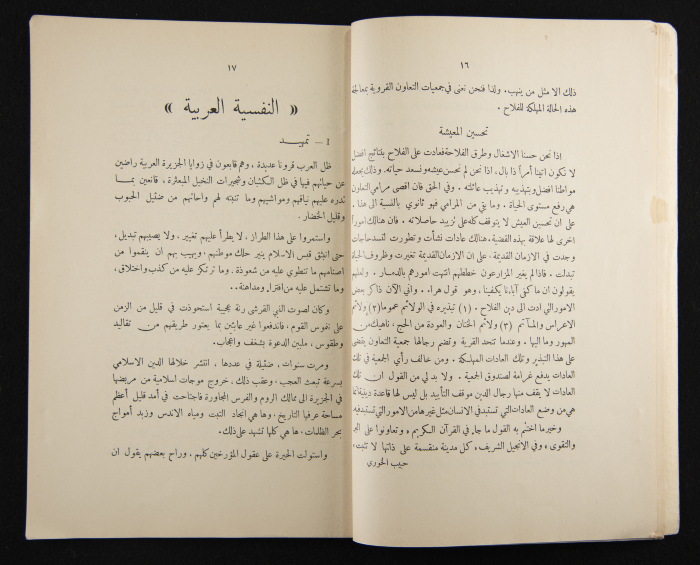 ١٦
ذلك الا مثل من ينهب . ولذا فنحن نعنى في جمعيات التعاون القروية بمعالجة
هذه الحالة المهلكة للفلاح .
تحسين المعيشة
اذا نحن حسنا الاشغال وطرق الفلاحة فعادت على الفلاح بنتائج افضل
لا نكون اتينا أمراً ذا بال ، اذا نحن لم نحسن عيشه ونسعد حياته . وذلك بجعله
مواطنا افضل وبتهذيبه وتهذيب عائلته . وفي الحق فان اقصى مرامي التعاون
هي رفع مستوى الحياة . وما بقي من المرامي فهو ثانوي بالنسبة الى هذا .
على ان تحسين العيش لا يتوقف كله على تزييد حاصلاته . فان هنالك اموراً
اخرى لها علاقة بهذه القضية . هنالك عادات نشأت وتطورت لسد حاجات
وجدت في الازمان القديمة ، على ان الازمان القديمة تغيرت وظروف الحياة
تبدلت . فاذا لم يغير المزارعون خططهم انتهت امورهم بالدمار . ولعلهم
يقولون ان ما كفى آباءنا يكفينا ، وهو قول هراء . وافي الآن ذاكر بعض
الامور التي ادت الى دين الفلاح . (١) تبذيره في الولائم عموما (٢) ولائم
الاعراس والمآتم (٣) ولائم الختان والعودة من الحج ، ناهيك من
المهور وما اليها . وعندما تتحد القرية وتضم رجالها جمعية التعاون يقضى
على هذا التبذير وتلك العادات المهلكة . ومن خالف رأي الجمعية في تلك
العادات يدفع غرامة لصندوق الجمعية . ولا بد لي من القول ان تلك
العادات لا يقف منها رجال الدين موقف التأييد بل ليس لها قاعدة دينية فانما
هي من وضع العادات التي تستبد في الانسان مثل غيرها من الامور التي تستبد فيه .
وخير ما اختم به القول ما جاء في القرآن الكريم « وتعاونوا على البر
والتقوى » وفي الانجيل الشريف « كل مدينة منقسمة على ذاتها لا تثبت »
حبيب الخوري
١٧
« النفسية العربية »
١ – تمهيد
ظل العرب قرونا عديدة ، وهم قابعون في زوايا الجزيرة العربية راضين
عن حياتهم فيها في ظل الكثبان وشجيرات النخيل المبعثرة ، قانعين بما
تدره عليهم نياقهم ومواشيهم وما تنبته لهم واحاتهم من ضئيل الحبوب
وقليل الخضار .
واستمروا على هذا الطراز ، لا يطرأ عليهم تغيير ، ولا يصيبهم تبديل ،
حتى انبثق قبس الاسلام ينير حلك موطنهم ، ويهيب بهم ان ينقموا من
اصنامهم ما تنطوي عليه من شعوذة . وما ترتكز عليه من كذب واختلاق ،
وما تشتمل عليه من افتراء ومداهنة . .
وكان لصوت النبي القرشي رنة عجيبة استحوذت في قليل من الزمن
على نفوس القوم ، فاندفعوا غير عابئين بما يعتور طريقهم من تقاليد
وطقوس ، ملبين الدعوة بشغف واعجاب .
ومرت سنوات ، ضئيلة في عددها ، انتشر خلالها الدين الاسلامي
بسرعة تبعث العجب . وعقب ذلك ، خروج موجات اسلامية من مربضها
في الجزيرة الى ممالك الروم والفرس المجاورة فاجتاحت في أمد قليل أعظم
مساحة عرفها التاريخ ، وها هي انجاد التبت ومياه الاندلس وزبد أمواج
بحر الظلمات ، ها هي كلها تشهد على ذلك .
واستولت الحيرة على عقول المؤرخين كلهم . وراح بعضهم يقول ان